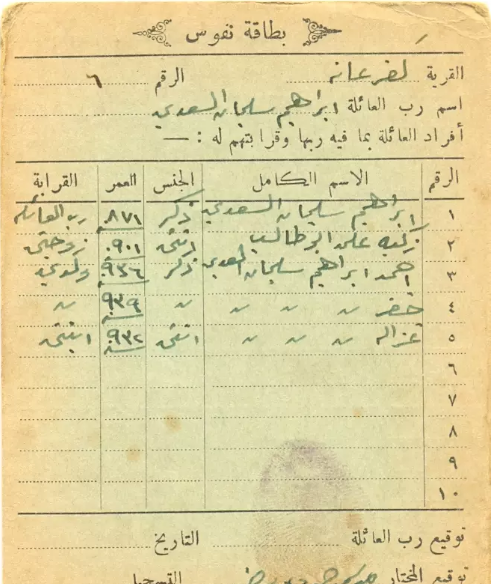 بطاقة نفوس
القرية كفرعانه الرقم ٦
اسم رب العائلة ابراهيم سليمان السعدي
أفراد العائلة بما فيه ربها وقرابتهم له : —
الرقم الاسم الكامل الجنس العمر القرابة
١ ابراهيم سليمان السعدي ذكر ٨٧١ رب العائله
٢ زكيه علي ابو طالب انثى ٩٠١ زوجتي
٣ احمد ابراهيم سليمان السعدي ذكر ٩٣٦ ولدي
٤ خضر 〃 〃 〃 〃 ٩٣٩ 〃
٥ غزاله 〃 〃 〃 انثى ٩٣٢ ابنتي
٦
٧
٨
٩
١٠
توقيع رب العائلة التاريخ
توقيع المختار التسجيل